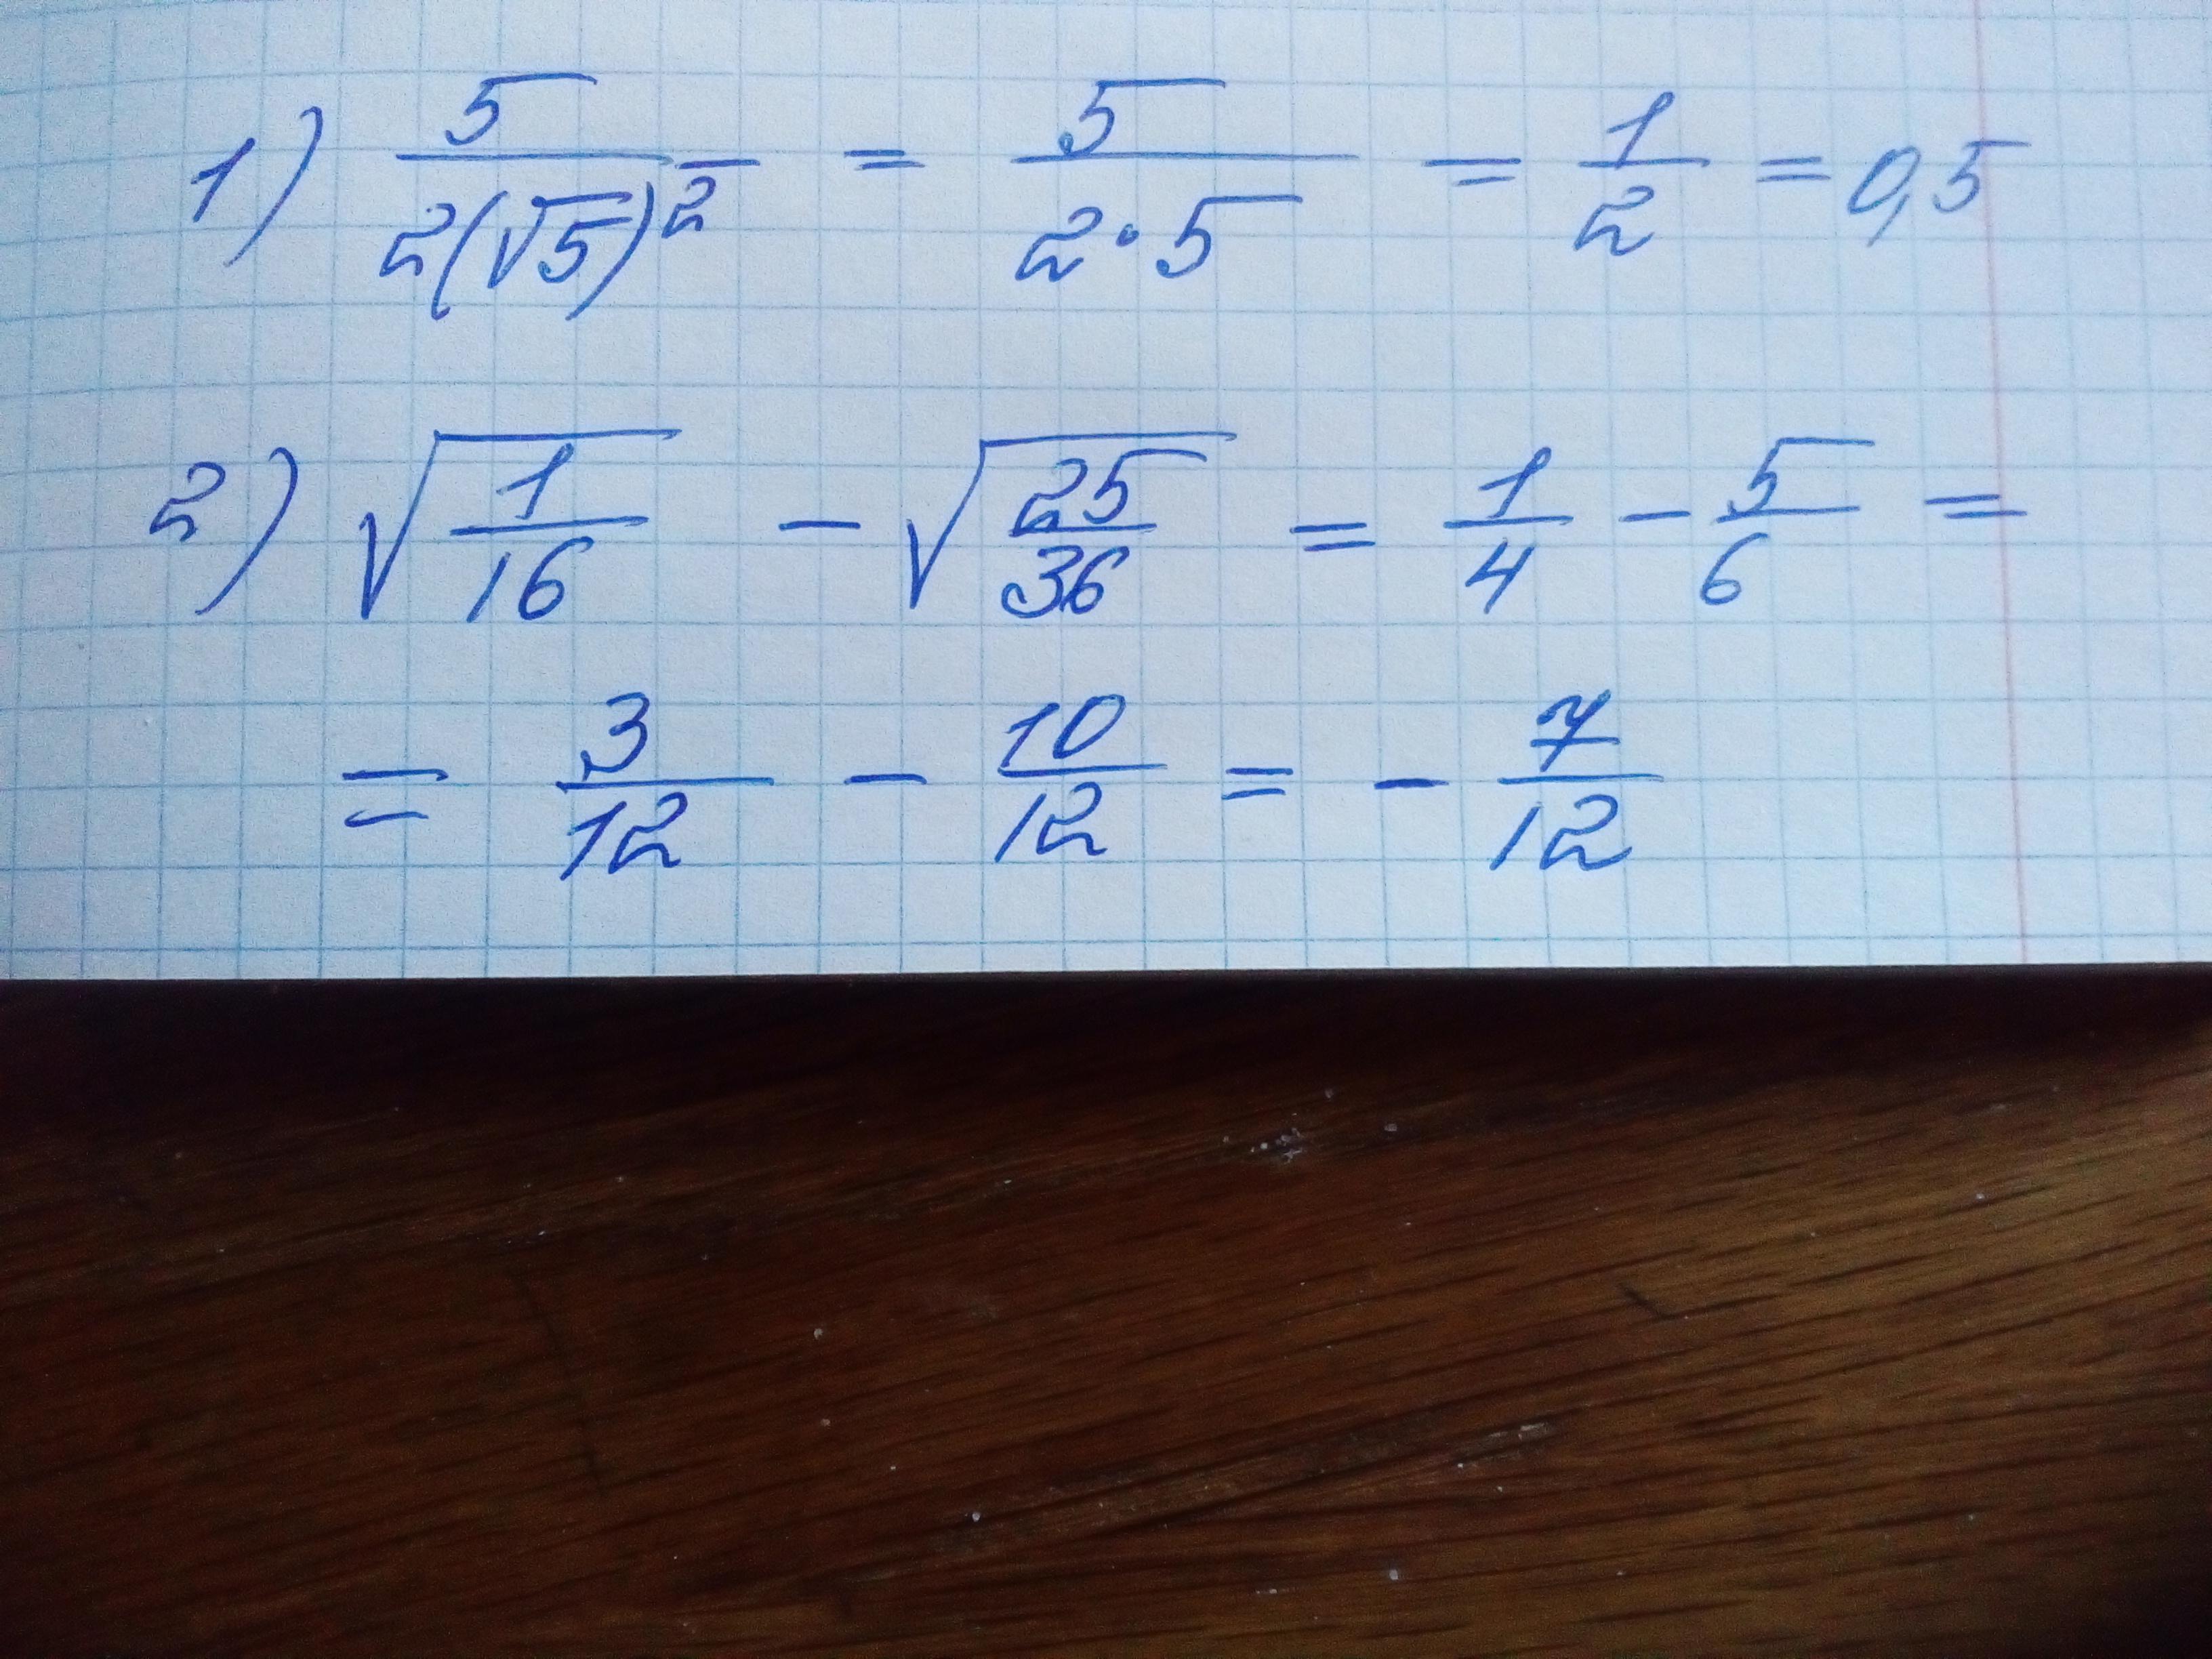 1) 5/(2(√5)²) = 5/(2·5) = 1/2 = 0,5
2) √(1/16) − √(25/36) = 1/4 − 5/6 =
= 3/12 − 10/12 = − 7/12